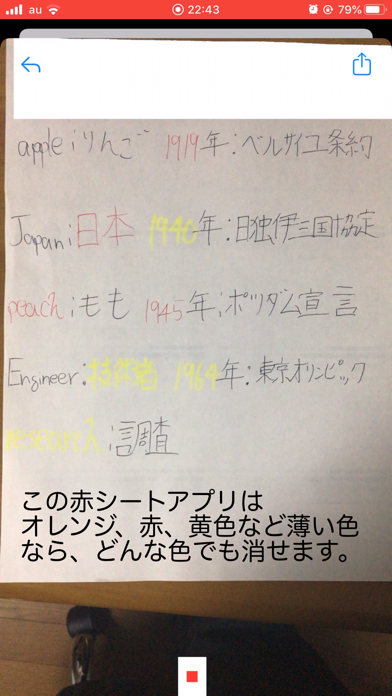 au 22:43 79%
apple:りんご 1919年:ベルサイユ条約
Japan:日本 1940年:日独伊三国協定
peach:もも 1945年:ポツダム宣言
Engineer:技術者 1964年:東京オリンピック
research:調査
この赤シートアプリは
オレンジ、赤、黄色など薄い色
なら、どんな色でも消せます。